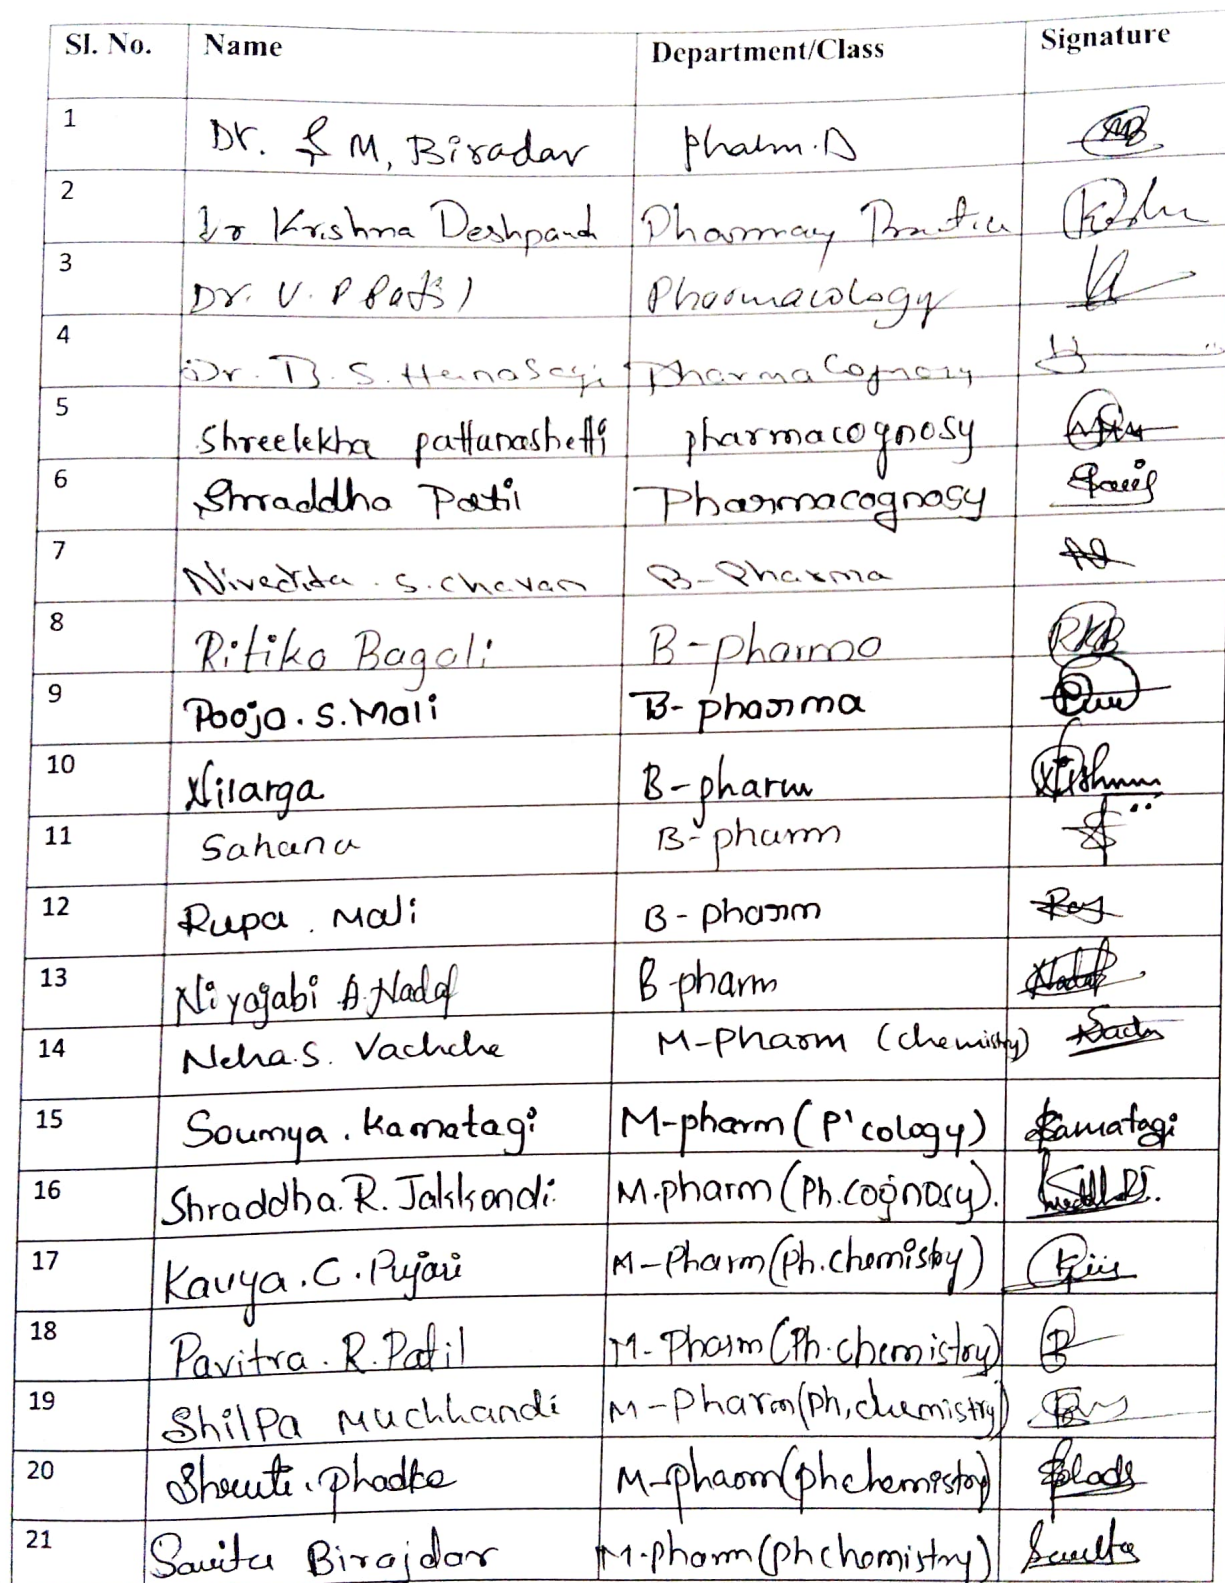 Sl. No. Name Department/Class Signature
1 Dr. S M, Biradar pharm.D
2 Dr Krishna Deshpand Pharmacy Practice
3 Dr. V. P Patil Pharmacology
4 Dr. B. S. Hanasagi Pharmacognosy
5 Shreelekha pattanashetti pharmacognosy
6 Shraddha Patil Pharmacognosy
7 Nivedita . S. Chavan B-Pharma
8 Ritika Bagali B-pharma RKB
9 Pooja . S. Mali B-pharma
10 Nisarga B-pharm
11 Sahana B-pharm
12 Rupa . Mali B-pharm
13 Niyajabi A. Nadaf B-pharm Nadaf
14 Neha.S. Vachche M-Pharm (chemistry)
15 Soumya . Kamatagi M-pharm (P'cology) Kamatagi
16 Shraddha. R. Jakkondi. M.pharm (Ph.cognosy).
17 Kavya . C . Pujari M-Pharm (Ph.chemistry)
18 Pavitra . R. Patil M-Pharm (Ph.chemistry)
19 Shilpa Muchhandi M-Pharm (ph,chemistry)
20 Shruti . phadke M-pharm (phchemistry)
21 Savita Birajdar M.pharm (phchemistry) Savita